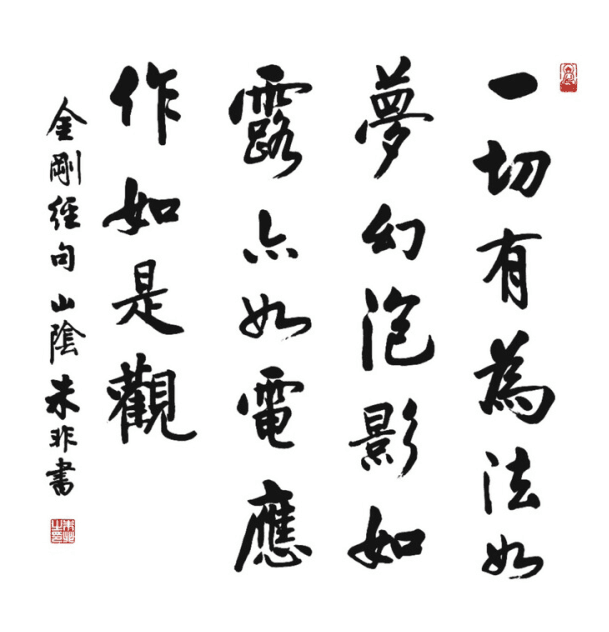 一切有為法如
夢幻泡影如
露亦如電應
作如是觀
金剛經句山陰朱非書